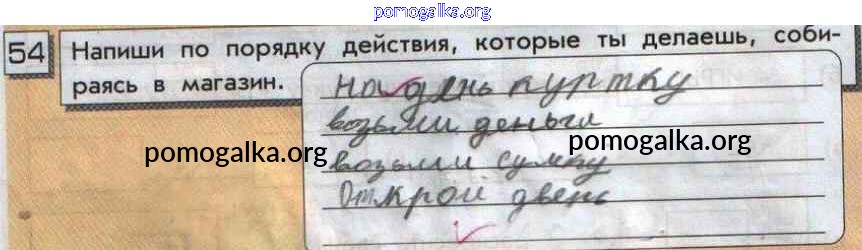 pomogalka.org
54 Напиши по порядку действия, которые ты делаешь, соби-
раясь в магазин.
Надень куртку
возьми деньги
pomogalka.org pomogalka.org
возьми сумку
Открой дверь